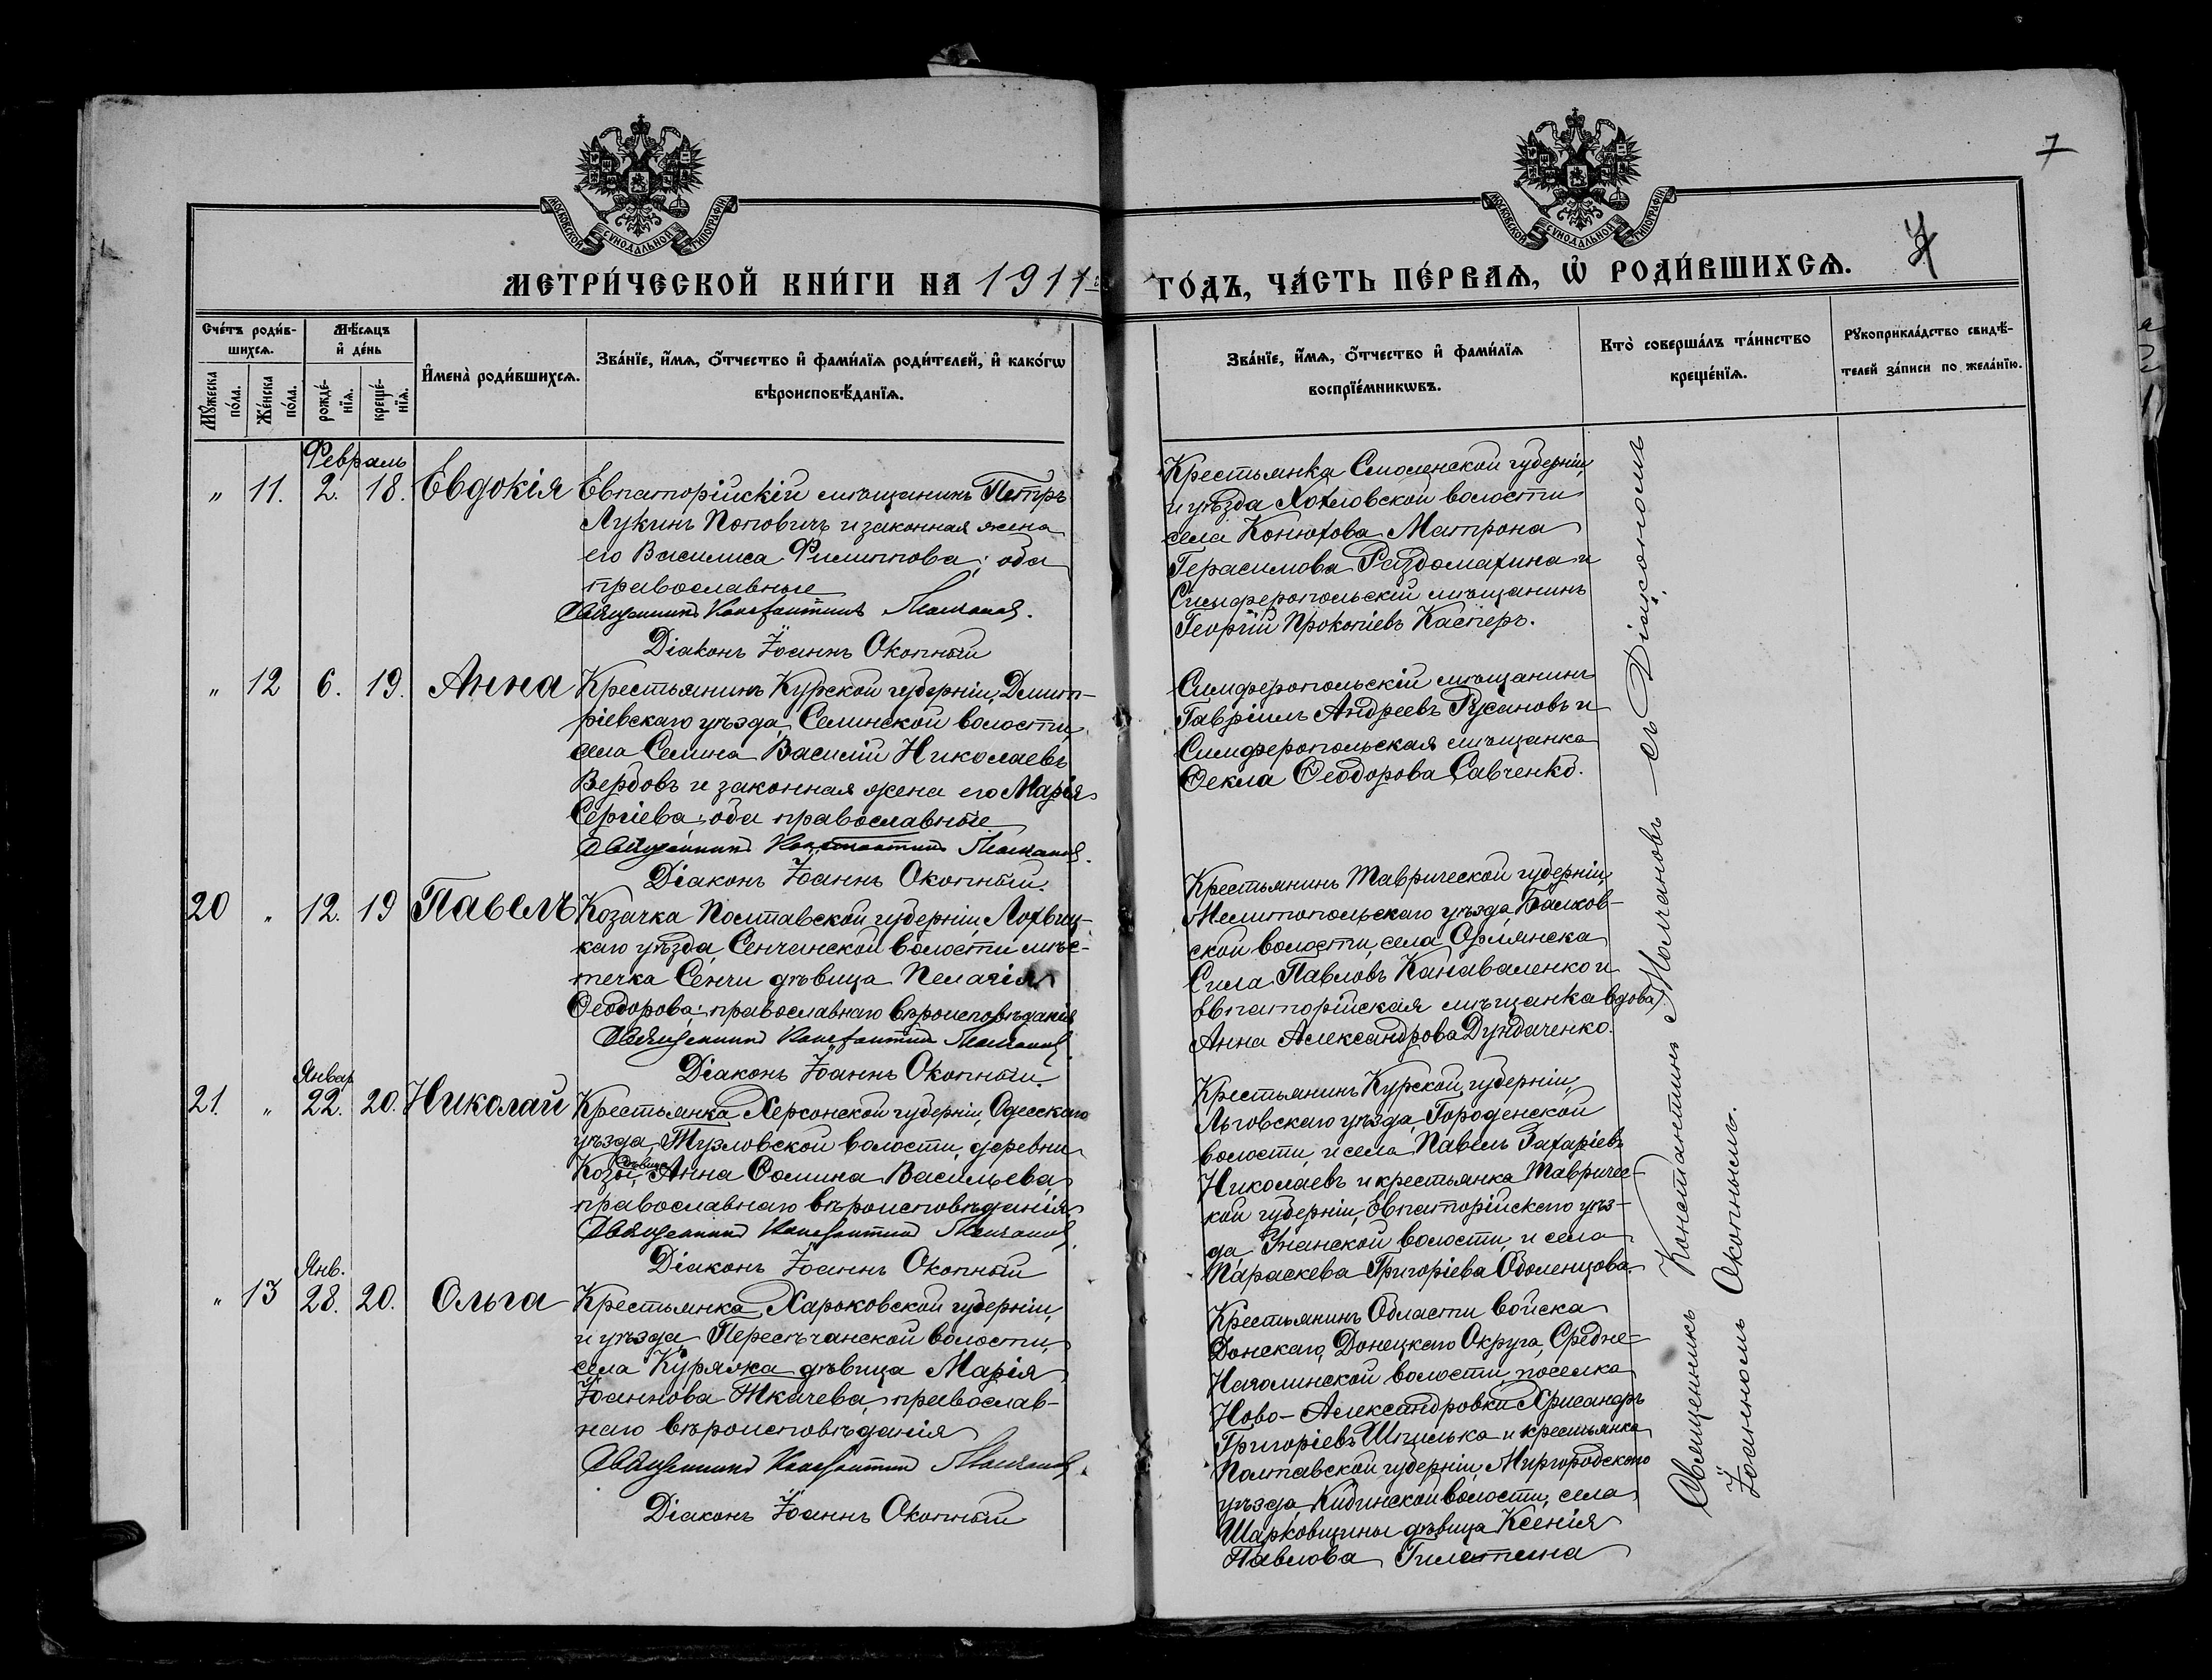 7
МОСКОВСКОЙ СѴНОДАЛЬНОЙ ТИПОГРАФІИ
МОСКОВСКОЙ СѴНОДАЛЬНОЙ ТИПОГРАФІИ
МЕТРИ́ЧЕСКОЙ КНИ́ГИ НА 1911 г ГО́ДЪ, ЧА́СТЬ ПЕ́РВАѦ, Ѽ РОДИ́ВШИХСѦ.
7
Сче́тъ роди́в-
шихсѧ.
Мꙋ́жеска по́ла.
Же́нска по́ла.
Мѣ́сяцъ
и҆ де́нь
рожде́-
нїѧ.
креще́-
нїѧ.
И҆мена̀ роди́вшихсѧ.
Зва́нїе, и҆́мѧ, ѻ҆́тчество и҆ фами́лїѧ роди́телей, и҆ како́гѡ
вѣроисповѣ́данїѧ.
Зва́нїе, и҆́мѧ, ѻ҆́тчество и҆ фами́лїѧ
воспрїе́мникѡвъ.
Кто̀ соверша́лъ та́инство
креще́нїѧ.
Рꙋкоприкла́дство свидѣ́-
телей за́писи по жела́нїю.
Февраль
" 11. 2. 18. Евдокія
Евпаторійскій мѣщанинъ Петръ
Лукинъ Поповичъ и законная жена
его Василиса Филиппова; оба
православные
Священникъ Константинъ Молчановъ.
Діаконъ Іоаннъ Окопный
Крестьянка Смоленской губерніи
и уѣзда Хохловской волости
села Конюхова Матрона
Герасимова Раздомахина и
Симферопольскій мѣщанинъ
Георгій Прокопіевъ Касперъ.
" 12 6. 19. Анна
Крестьянинъ Курской губерніи, Дмит-
ріевскаго уѣзда, Селинской волости,
села Селина Василій Николаевъ
Вербовъ и законная жена его Марія
Сергіева; оба православные
Священникъ Константинъ Молчановъ.
Діаконъ Іоаннъ Окопный.
Симферопольскій мѣщанинъ
Гавріилъ Андреевъ Русановъ и
Симферопольская мѣщанка
Ѳекла Ѳеодорова Савченко.
20 " 12. 19 Павелъ
Козачка Полтавской губерніи, Лохвиц-
каго уѣзда, Сенчанской волости мѣс-
течка Сенчи дѣвица Пелагія
Ѳеодорова; православнаго вѣроисповѣданія
Священникъ Константинъ Молчановъ.
Діаконъ Іоаннъ Окопный.
Крестьянинъ Таврической губерніи,
Мелитопольскаго уѣзда, Балков-
ской волости, села Орлянска
Сила Павловъ Канаваленко и
Евпаторійская мѣщанка вдова
Анна Александрова Дундаченко.
Январ
21. " 22. 20. Николай
Крестьянка Херсонской губерніи, Одесскаго
уѣзда Тузловской волости, деревни
Козы, дѣвица Анна Ѳомина Васильева,
православнаго вѣроисповѣданія
Священникъ Константинъ Молчановъ.
Діаконъ Іоаннъ Окопный
Крестьянинъ Курской, губерніи,
Льговскаго уѣзда, Городенской
волости, и села Павелъ Захаріевъ
Николаевъ и крестьянка Тавричес-
кой губерніи, Евпаторійскаго уѣз-
да волости и села
Параскева Григоріева Оболенцова.
Янв.
" 13 28. 20. Ольга
Крестьянка Харьковской губерніи,
и уѣзда Пересѣчанской волости,
села Куряжа дѣвица Марія
Іоаннова Ткачева, православ-
наго вѣроисповѣданія
Священникъ Константинъ Молчановъ.
Діаконъ Іоаннъ Окопный
Крестьянинъ Области войска
Донскаго, Донецкаго Округа, Средне-
Наголинской волости, поселка
Ново-Александровки Хрисанфъ
Григоріевъ Шпилька и крестьянка
Полтавской губерніи, Миргородскаго
уѣзда, Кибинской волости, села
Шарковщины дѣвица Ксенія
Павлова
Священникъ Константинъ Молчановъ — съ Діакономъ
Іоанномъ Окопнымъ.